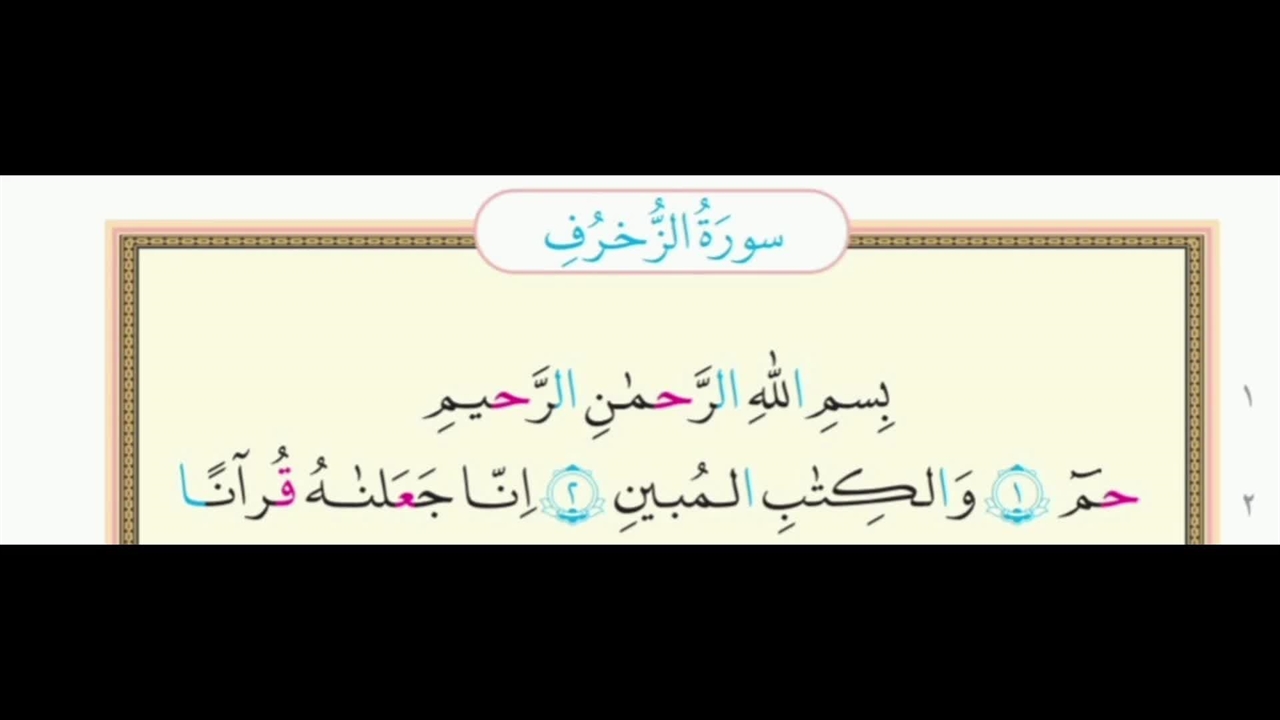 سورَةُ الزُّخرُفِ
بِسمِ اللّٰهِ الرَّحمٰنِ الرَّحیمِ ١
حمٓ ﴿١﴾ وَالکِتٰبِ المُبینِ ﴿٢﴾ اِنّا جَعَلنٰهُ قُرآنًا ٢